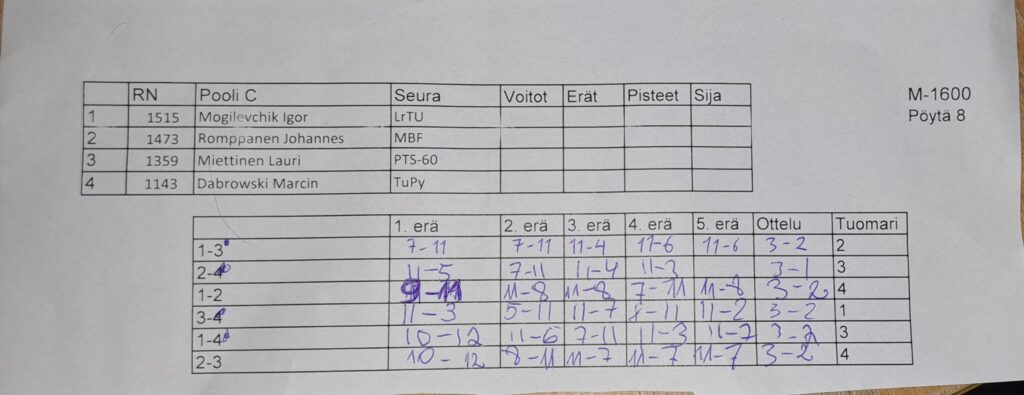 RN Pooli C Seura Voitot Erät Pisteet Sija
1 1515 Mogilevchik Igor LrTU
2 1473 Romppanen Johannes MBF
3 1359 Miettinen Lauri PTS-60
4 1143 Dabrowski Marcin TuPy
M-1600
Pöytä 8
1. erä 2. erä 3. erä 4. erä 5. erä Ottelu Tuomari
1-3 7-11 7-11 11-4 11-6 11-6 3-2 2
2-4 11-5 7-11 11-4 11-3 3-1 3
1-2 9-11 11-8 11-8 7-11 11-8 3-2 4
3-4 11-3 5-11 11-7 8-11 11-2 3-2 1
1-4 10-12 11-6 7-11 11-3 11-7 3-2 3
2-3 10-12 8-11 11-7 11-7 11-7 3-2 4